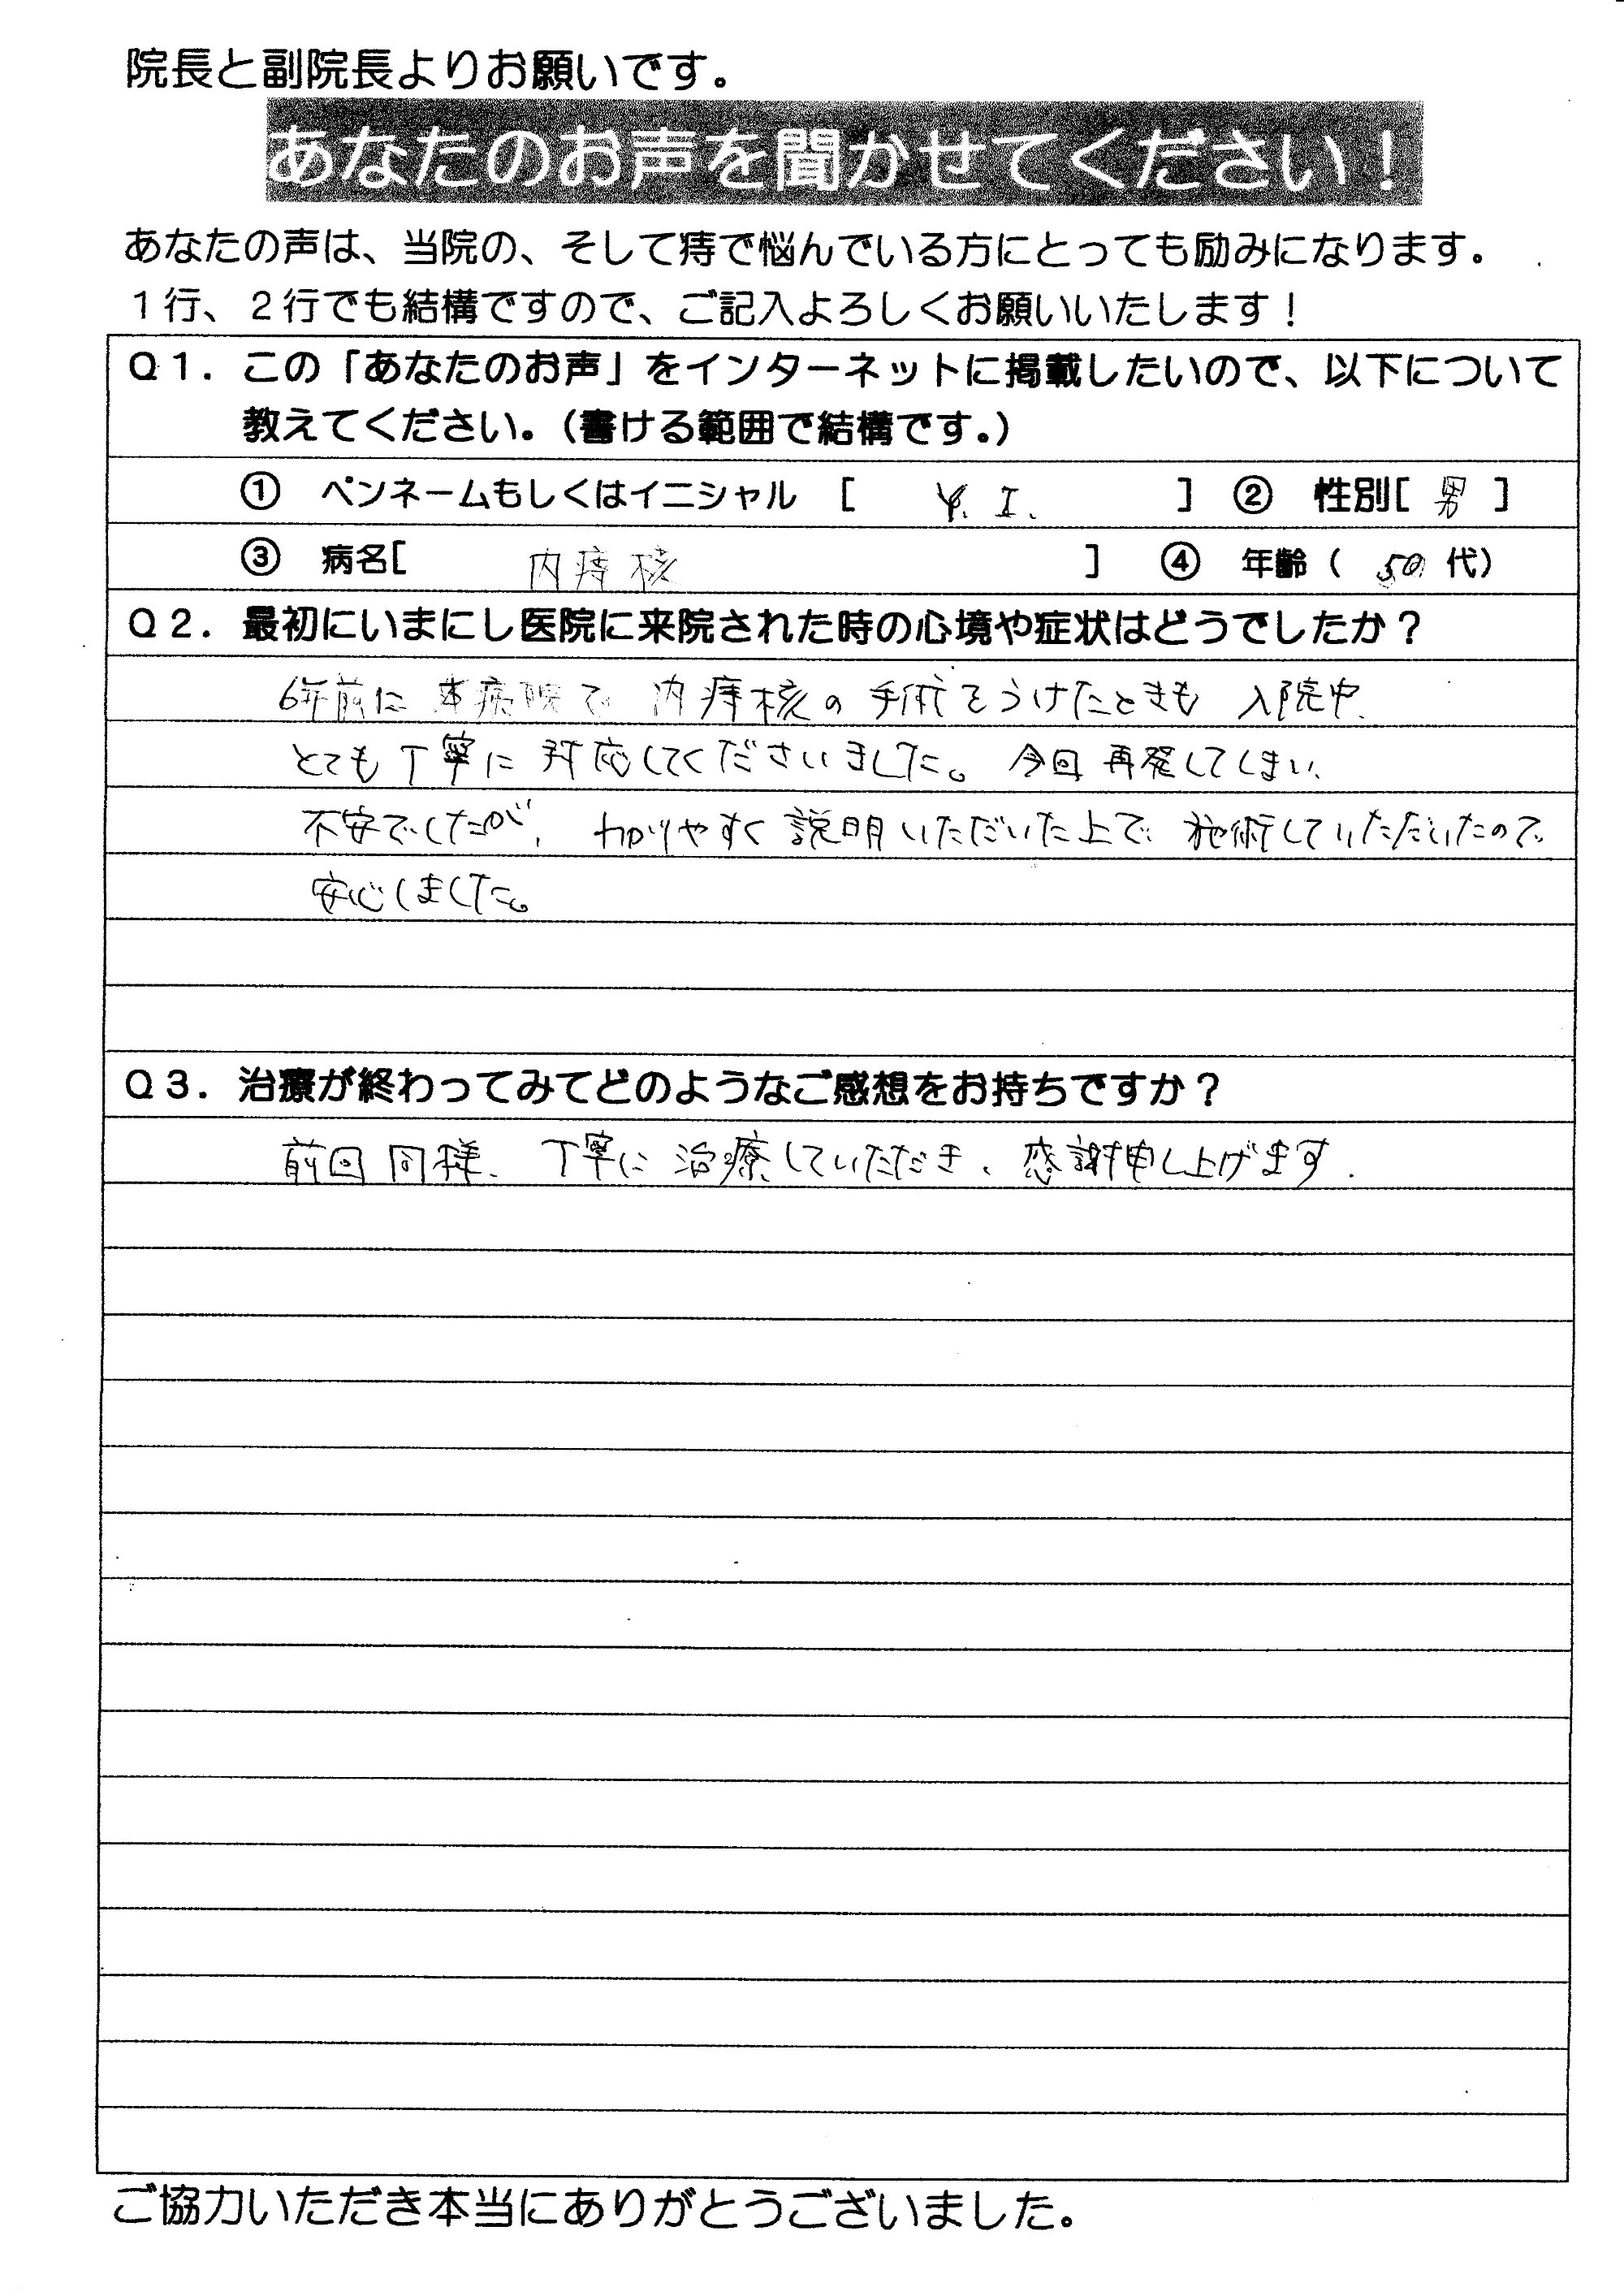 院長と副院長よりお願いです。
あなたのお声を聞かせてください！
あなたの声は、当院の、そして痔で悩んでいる方にとっても励みになります。
１行、２行でも結構ですので、ご記入よろしくお願いいたします！
Ｑ１．この「あなたのお声」をインターネットに掲載したいので、以下について
教えてください。（書ける範囲で結構です。）
① ペンネームもしくはイニシャル [ Y. I. ] ② 性別[ 男 ]
③ 病名[ 内痔核 ] ④ 年齢（ 50 代）
Ｑ２．最初にいまにし医院に来院された時の心境や症状はどうでしたか？
6年前に本病院で内痔核の手術をうけたときも入院中、
とても丁寧に対応してくださいました。今回再発してしまい、
不安でしたが、わかりやすく説明いただいた上で施術していただいたので
安心しました。
Ｑ３．治療が終わってみてどのようなご感想をお持ちですか？
前回同様、丁寧に治療していただき、感謝申し上げます.
ご協力いただき本当にありがとうございました。